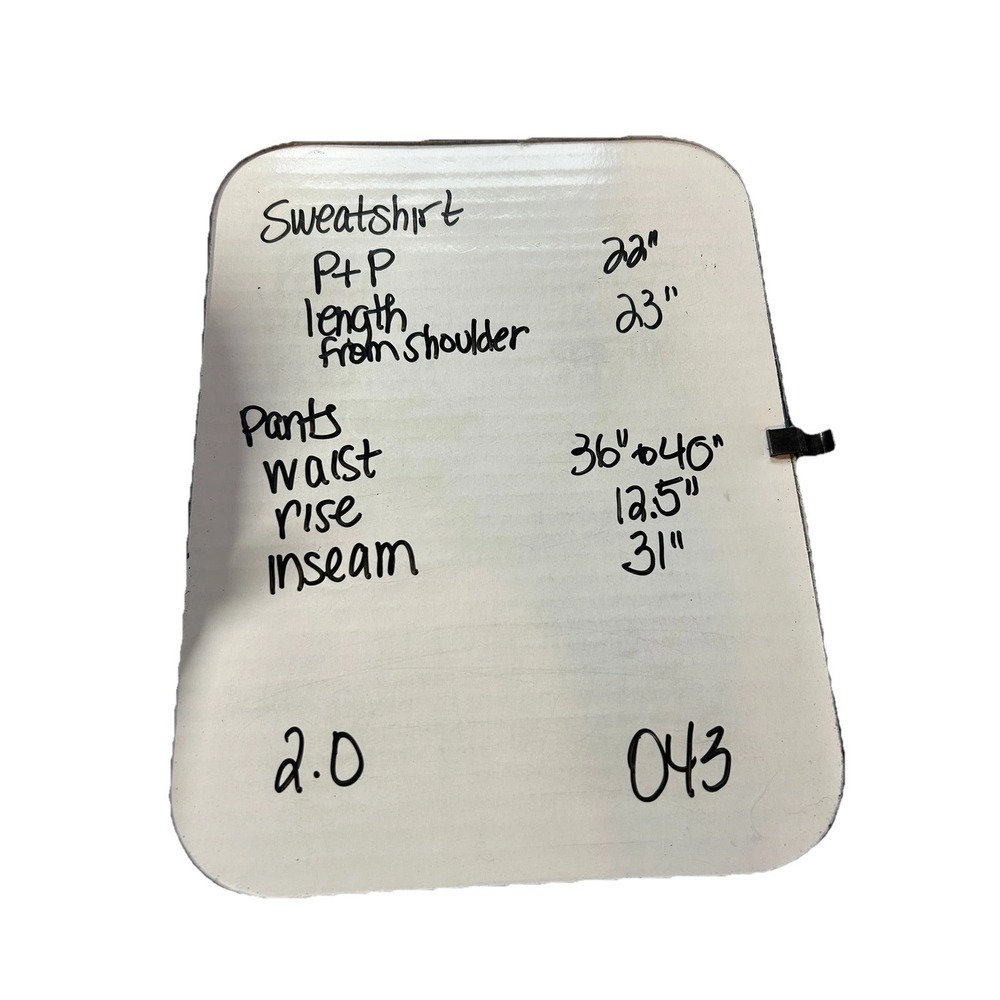 Sweatshirt
P+P 22"
length 23"
from shoulder
Pants
waist 36" to 40"
rise 12.5"
inseam 31"
2.0 043